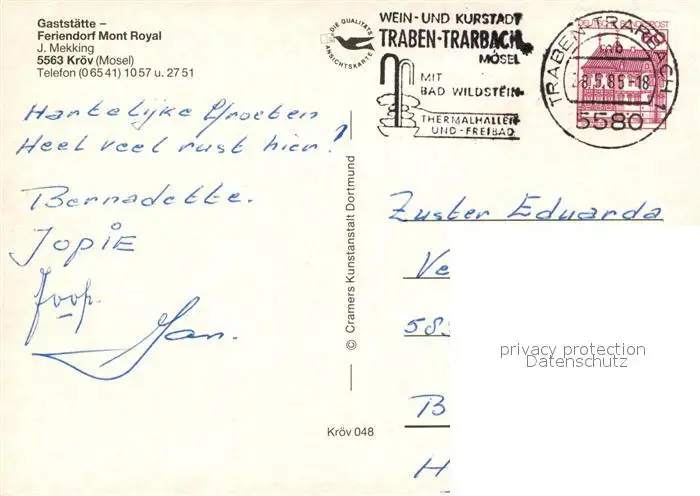 Gaststätte –
Feriendorf Mont Royal
J. Mekking
5563 Kröv (Mosel)
Telefon (0 65 41) 10 57 u. 27 51
DIE QUALITÄTS
ANSICHTSKARTE
WEIN- UND KURSTADT
TRABEN-TRARBACH
MOSEL
MIT
BAD WILDSTEIN
THERMALHALLEN
UND -FREIBAD
DEUTSCHE BUNDESPOST
TRABEN-TRARBACH 1
b
28.5.85-18
5580
Hartelijke Groeten
Heel veel rust hier!
Bernadette.
JOPIE
Joop.
Jan.
© Cramers Kunstanstalt Dortmund
Kröv 048
Zuster Eduarda
Ve
58
B
H
privacy protection
Datenschutz